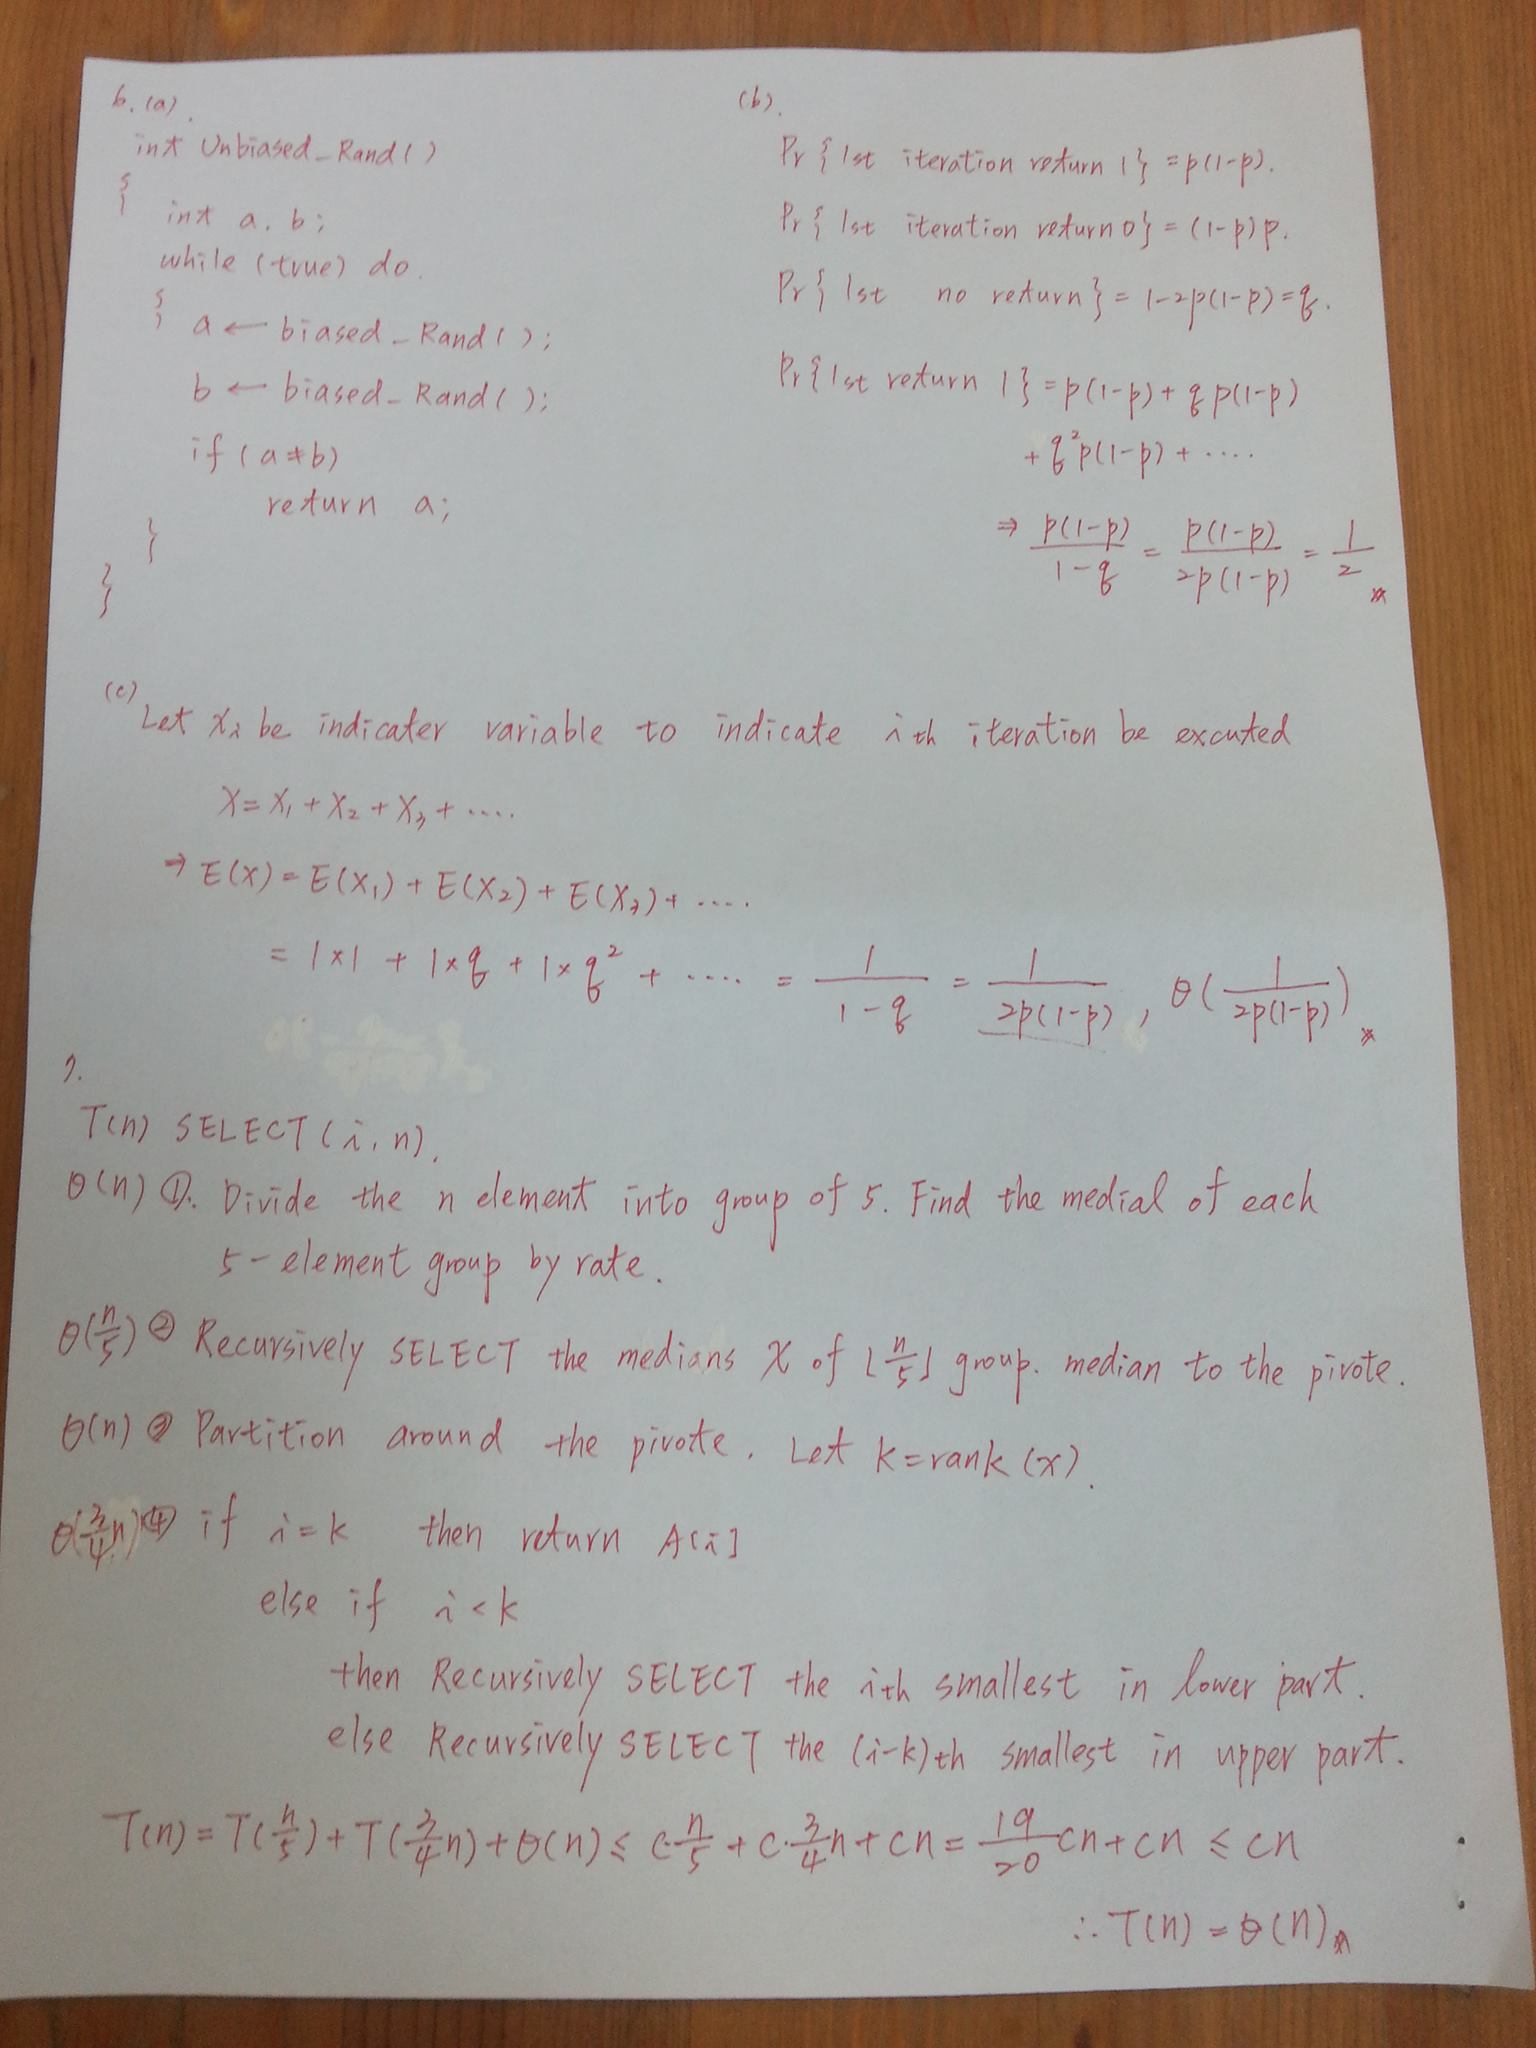 6. (a).
int Unbiased_Rand()
{
int a, b;
while (true) do.
{
a ← biased_Rand();
b ← biased_Rand();
if (a≠b)
return a;
}
}
(b).
Pr{1st iteration return 1} = p(1-p).
Pr{1st iteration return 0} = (1-p)p.
Pr{1st no return} = 1-2p(1-p)=q.
Pr{1st return 1} = p(1-p) + q p(1-p)
+ q²p(1-p) + ....
⇒ p(1-p)/(1-q) = p(1-p)/(2p(1-p)) = 1/2 *
(c)
Let Xi be indicater variable to indicate ith iteration be excuted
X = X₁ + X₂ + X₃ + ....
⇒ E(X) = E(X₁) + E(X₂) + E(X₃) + ....
= 1×1 + 1×q + 1×q² + .... = 1/(1-q) = 1/(2p(1-p)), θ(1/(2p(1-p))) *
7.
T(n) SELECT(i, n).
θ(n) ①. Divide the n element into group of 5. Find the medial of each
5-element group by rate.
θ(n/5) ② Recursively SELECT the medians X of ⌊n/5⌋ group. median to the pivote.
θ(n) ③ Partition around the pivote. Let k=rank(x).
θ(3/4 n) ④ if i=k then return A[i]
else if i<k
then Recursively SELECT the ith smallest in lower part.
else Recursively SELECT the (i-k)th smallest in upper part.
T(n) = T(n/5) + T(3/4 n) + θ(n) ≤ c·n/5 + c·3/4 n + cn = 19/20 cn + cn ≤ cn
∴ T(n) = θ(n) *